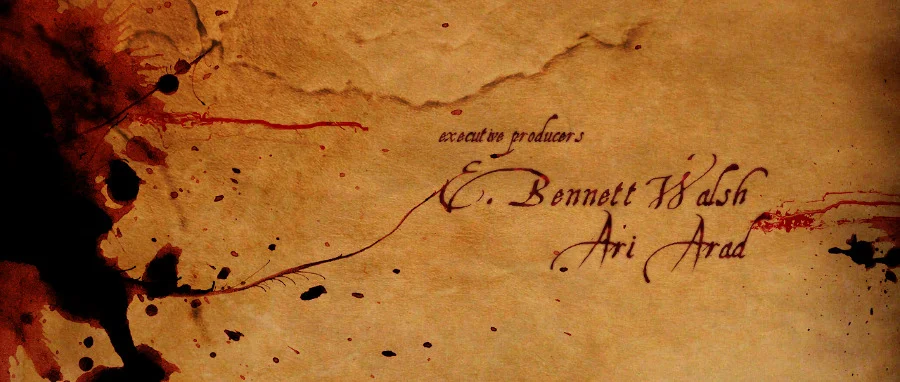 executive producers
E. Bennett Walsh
Ari Arad